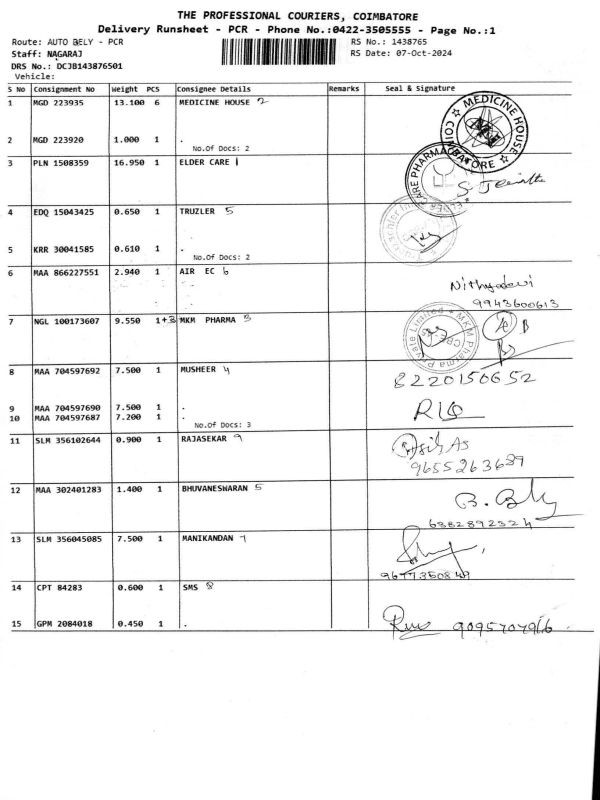 THE PROFESSIONAL COURIERS, COIMBATORE
Delivery Runsheet - PCR - Phone No.:0422-3505555 - Page No.:1
Route: AUTO BELY - PCR RS No.: 1438765
Staff: NAGARAJ RS Date: 07-Oct-2024
DRS No.: DCJB143876501
Vehicle:
S No Consignment No Weight PCS Consignee Details Remarks Seal & Signature
1 MGD 223935 13.100 6 MEDICINE HOUSE 2
MEDICINE HOUSE COIMBATORE
2 MGD 223920 1.000 1 .
No.Of Docs: 2
3 PLN 1508359 16.950 1 ELDER CARE 1
CARE PHARMA
4 EDQ 15043425 0.650 1 TRUZLER 5
5 KRR 30041585 0.610 1 .
No.Of Docs: 2
6 MAA 866227551 2.940 1 AIR EC 6
Nithyadevi
9943600613
7 NGL 100173607 9.550 1+3 MKM PHARMA 3
MKM Pharma Private Limited
8 MAA 704597692 7.500 1 MUSHEER 4
8220150652
9 MAA 704597690 7.500 1 .
10 MAA 704597687 7.200 1 .
No.Of Docs: 3
11 SLM 356102644 0.900 1 RAJASEKAR 9
9655263689
12 MAA 302401283 1.400 1 BHUVANESWARAN 5
6382892324
13 SLM 356045085 7.500 1 MANIKANDAN 1
9677350849
14 CPT 84283 0.600 1 SMS 8
15 GPM 2084018 0.450 1 .